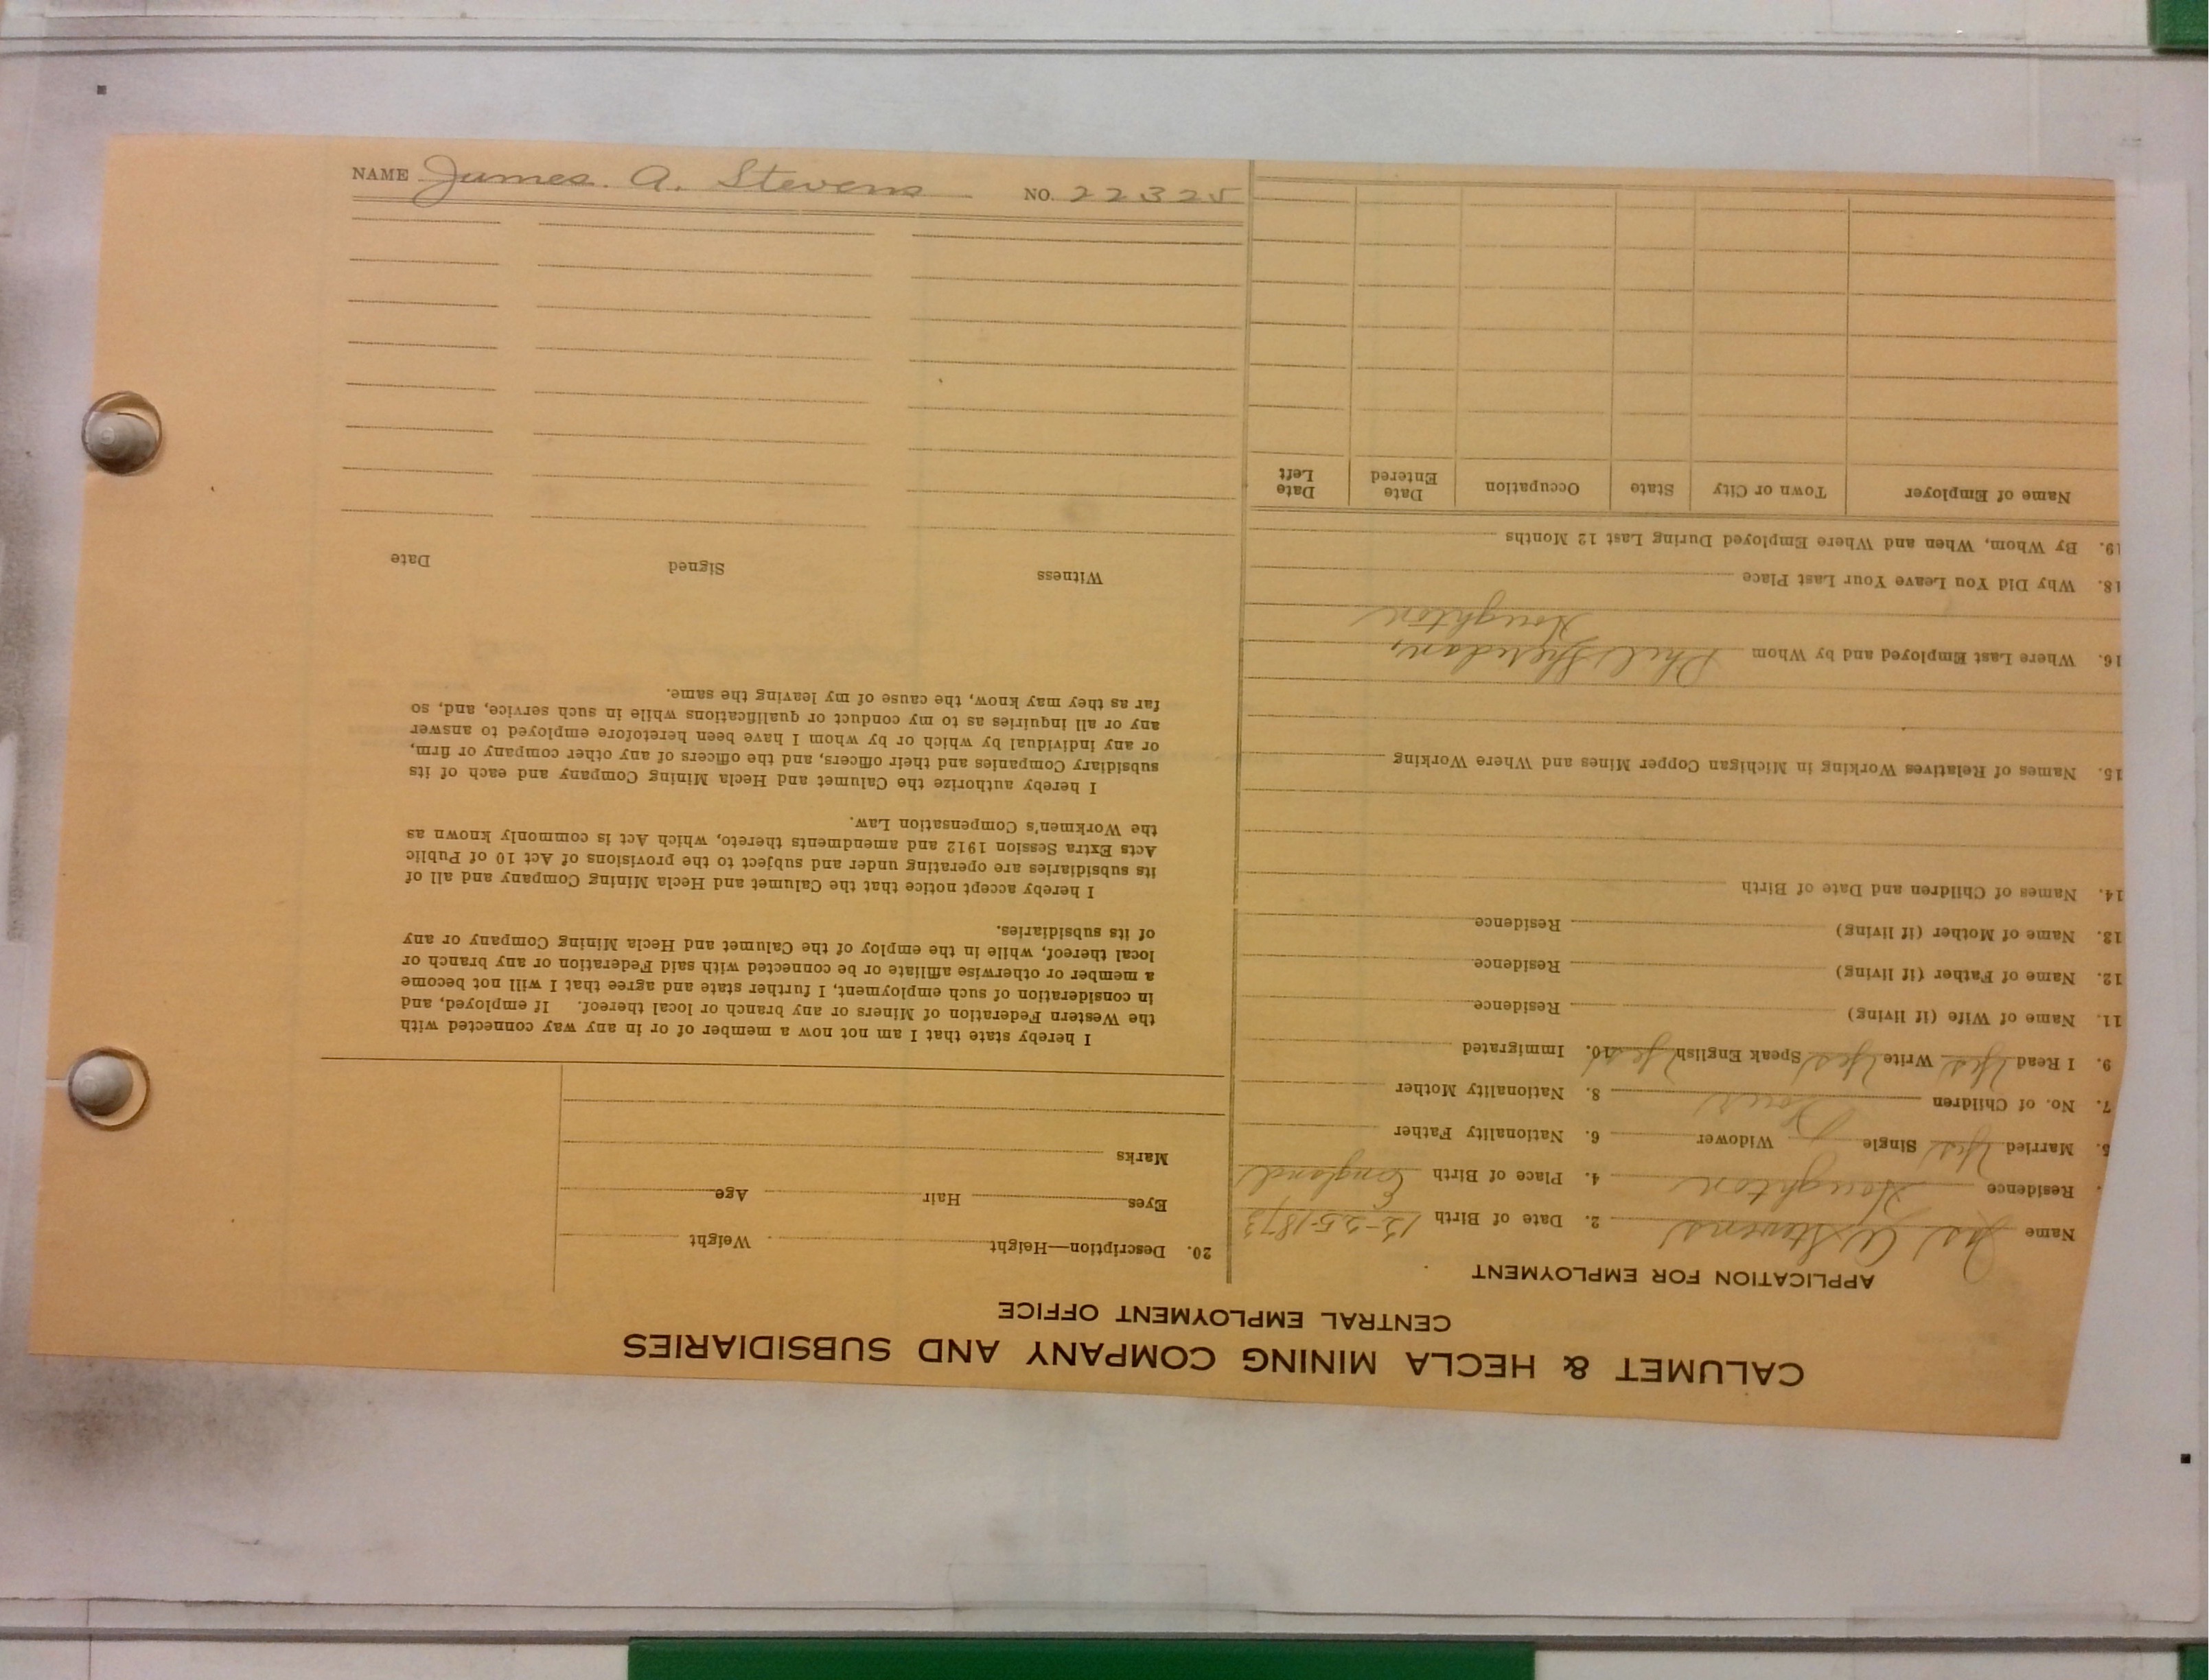 NAME James. A. Stevens NO. 22325
CALUMET & HECLA MINING COMPANY AND SUBSIDIARIES
CENTRAL EMPLOYMENT OFFICE
APPLICATION FOR EMPLOYMENT
Name Jas A Stevens 2. Date of Birth 12-25-1873
Residence Houghton 4. Place of Birth England
5. Married Yes Single Widower 6. Nationality Father
7. No. of Children Four 8. Nationality Mother
9. I Read Yes Write Yes Speak English Yes 10. Immigrated
11. Name of Wife (if living) Residence
12. Name of Father (if living) Residence
13. Name of Mother (if living) Residence
14. Names of Children and Date of Birth
15. Names of Relatives Working in Michigan Copper Mines and Where Working
16. Where Last Employed and by Whom Phil Sheridan,
Houghton
18. Why Did You Leave Your Last Place
19. By Whom, When and Where Employed During Last 12 Months
Name of Employer Town or City State Occupation Date Entered Date Left
20. Description—Height Weight
Eyes Hair Age
Marks
I hereby state that I am not now a member of or in any way connected with
the Western Federation of Miners or any branch or local thereof. If employed, and
in consideration of such employment, I further state and agree that I will not become
a member or otherwise affiliate or be connected with said Federation or any branch or
local thereof, while in the employ of the Calumet and Hecla Mining Company or any
of its subsidiaries.
I hereby accept notice that the Calumet and Hecla Mining Company and all of
its subsidiaries are operating under and subject to the provisions of Act 10 of Public
Acts Extra Session 1912 and amendments thereto, which Act is commonly known as
the Workmen's Compensation Law.
I hereby authorize the Calumet and Hecla Mining Company and each of its
subsidiary Companies and their officers, and the officers of any other company or firm,
or any individual by which or by whom I have been heretofore employed to answer
any or all inquiries as to my conduct or qualifications while in such service, and, so
far as they may know, the cause of my leaving the same.
Witness Signed Date